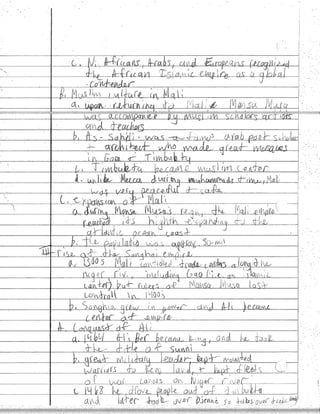 c. N. Africans, Arabs, and Europeans recognized
the African Islamic empire as a global
contender
B. Muslim culture in Mali
a. upon returning to Mali, Mansa Musa
was accompanied by muslim scholars artists
and teachers
b. As-Sahili was a famous arab poet scholar
+ architect who made great mosques
in Gao + Timbuktu
c. Timbuktu became muslim center
d. unlike Mecca during muhammads time, Mali
was very peaceful + safe
C. expansion of Mali
a. during Mansa Musa's reign, the Mali empire
reached its highth expanding to the
atlantic ocean coast
b. the populatio was approx. 50 mil
III rise of the Songhai empire
a. 1300s Mali controlled trade centers along the
niger riv. including Gao (i.e. an islamic
center) but rulers of Mansa Musa lost
controll in 1400s
b. Songhia grew in power and became
center of empire
A. Conquest of Ali
a. 1464 Ali Ber became king, and he took
the title of sunni
b. great military leader kept mounted
warriors to keep land, + kept fleets
of war canoes on Niger river
c. 1468 he drove people out of Timbuktu
and later took over Djenne so takes over trade